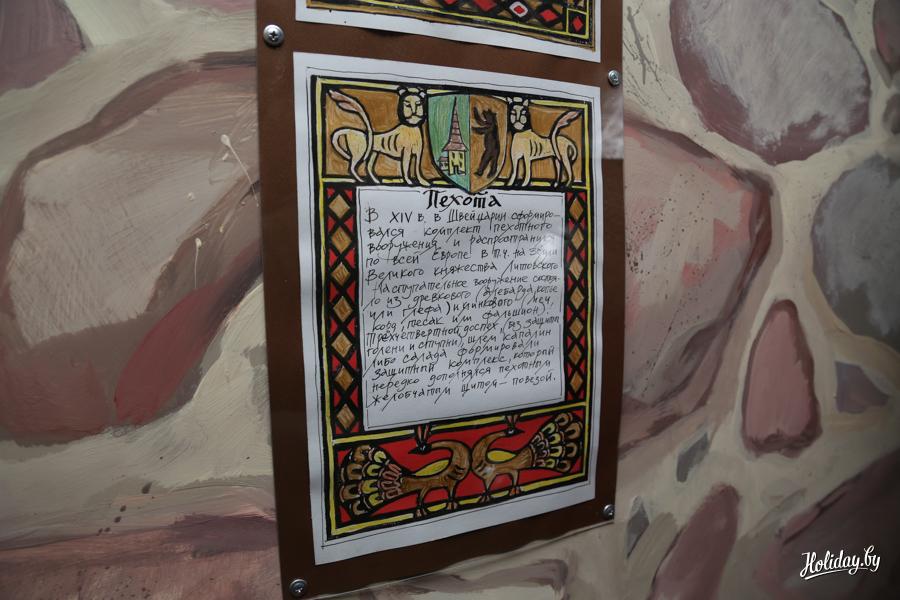 Пехота
В XIV в. в Швейцарии сформиро-
вался комплект пехотного
вооружения и распространился
по всей Европе в т.ч. на земли
Великого княжества Литовского
Наступательное вооружение состоя-
ло из древкового (алебарда, копье
или глефа) и клинкового (меч,
корд, тесак или фальшион).
Трехчетвертной доспех, (без защиты
голени и ступни), шлем капалин
либо салада формировали
защитный комплекс, который
нередко дополнялся пехотным
желобчатым щитом — повезой.
Holiday.by